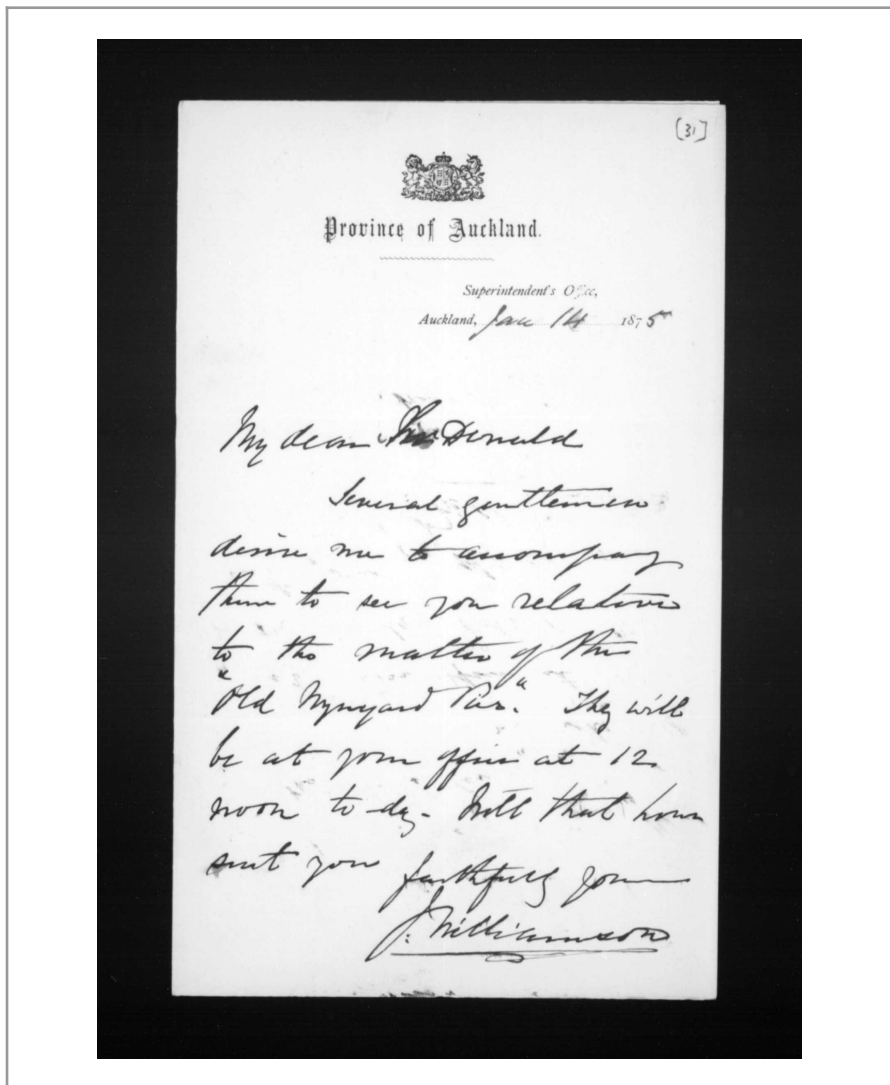 [31]
Province of Auckland.
Superintendent's Office,
Auckland, Jan 14 1875
My dear Donald
Several gentlemen
desire me to accompany
them to see you relative
to the matter of the
"Old Wynyard Pier." They will
be at your office at 12
noon to-day - Will that hour
suit you
faithfully yours
J. Williamson